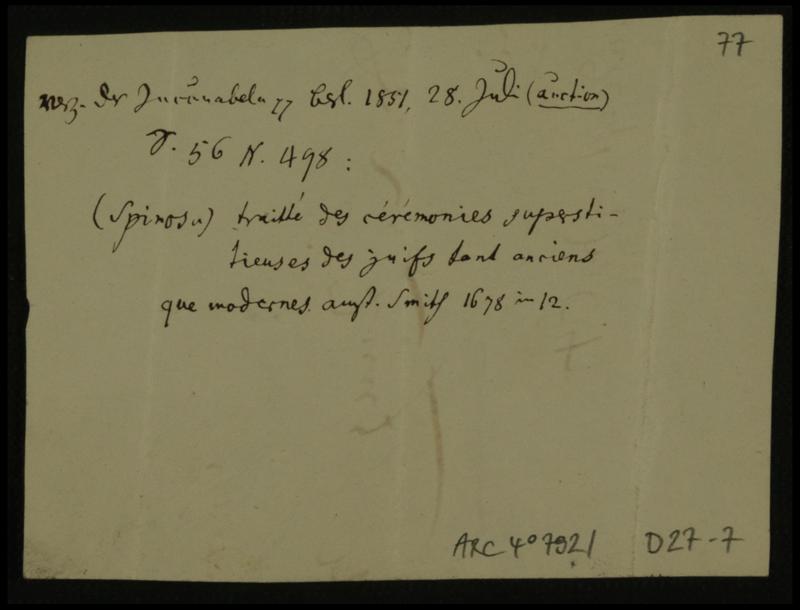 77
Verz. der Incunabeln pp Berl. 1851, 28. Juli (auction)
S. 56 N. 498:
(Spinosa) traitté des cérémonies supersti-
tieuses des juifs tant anciens
que modernes. amst. Smith 1678 in 12.
ARC 4° 792/ D27-7